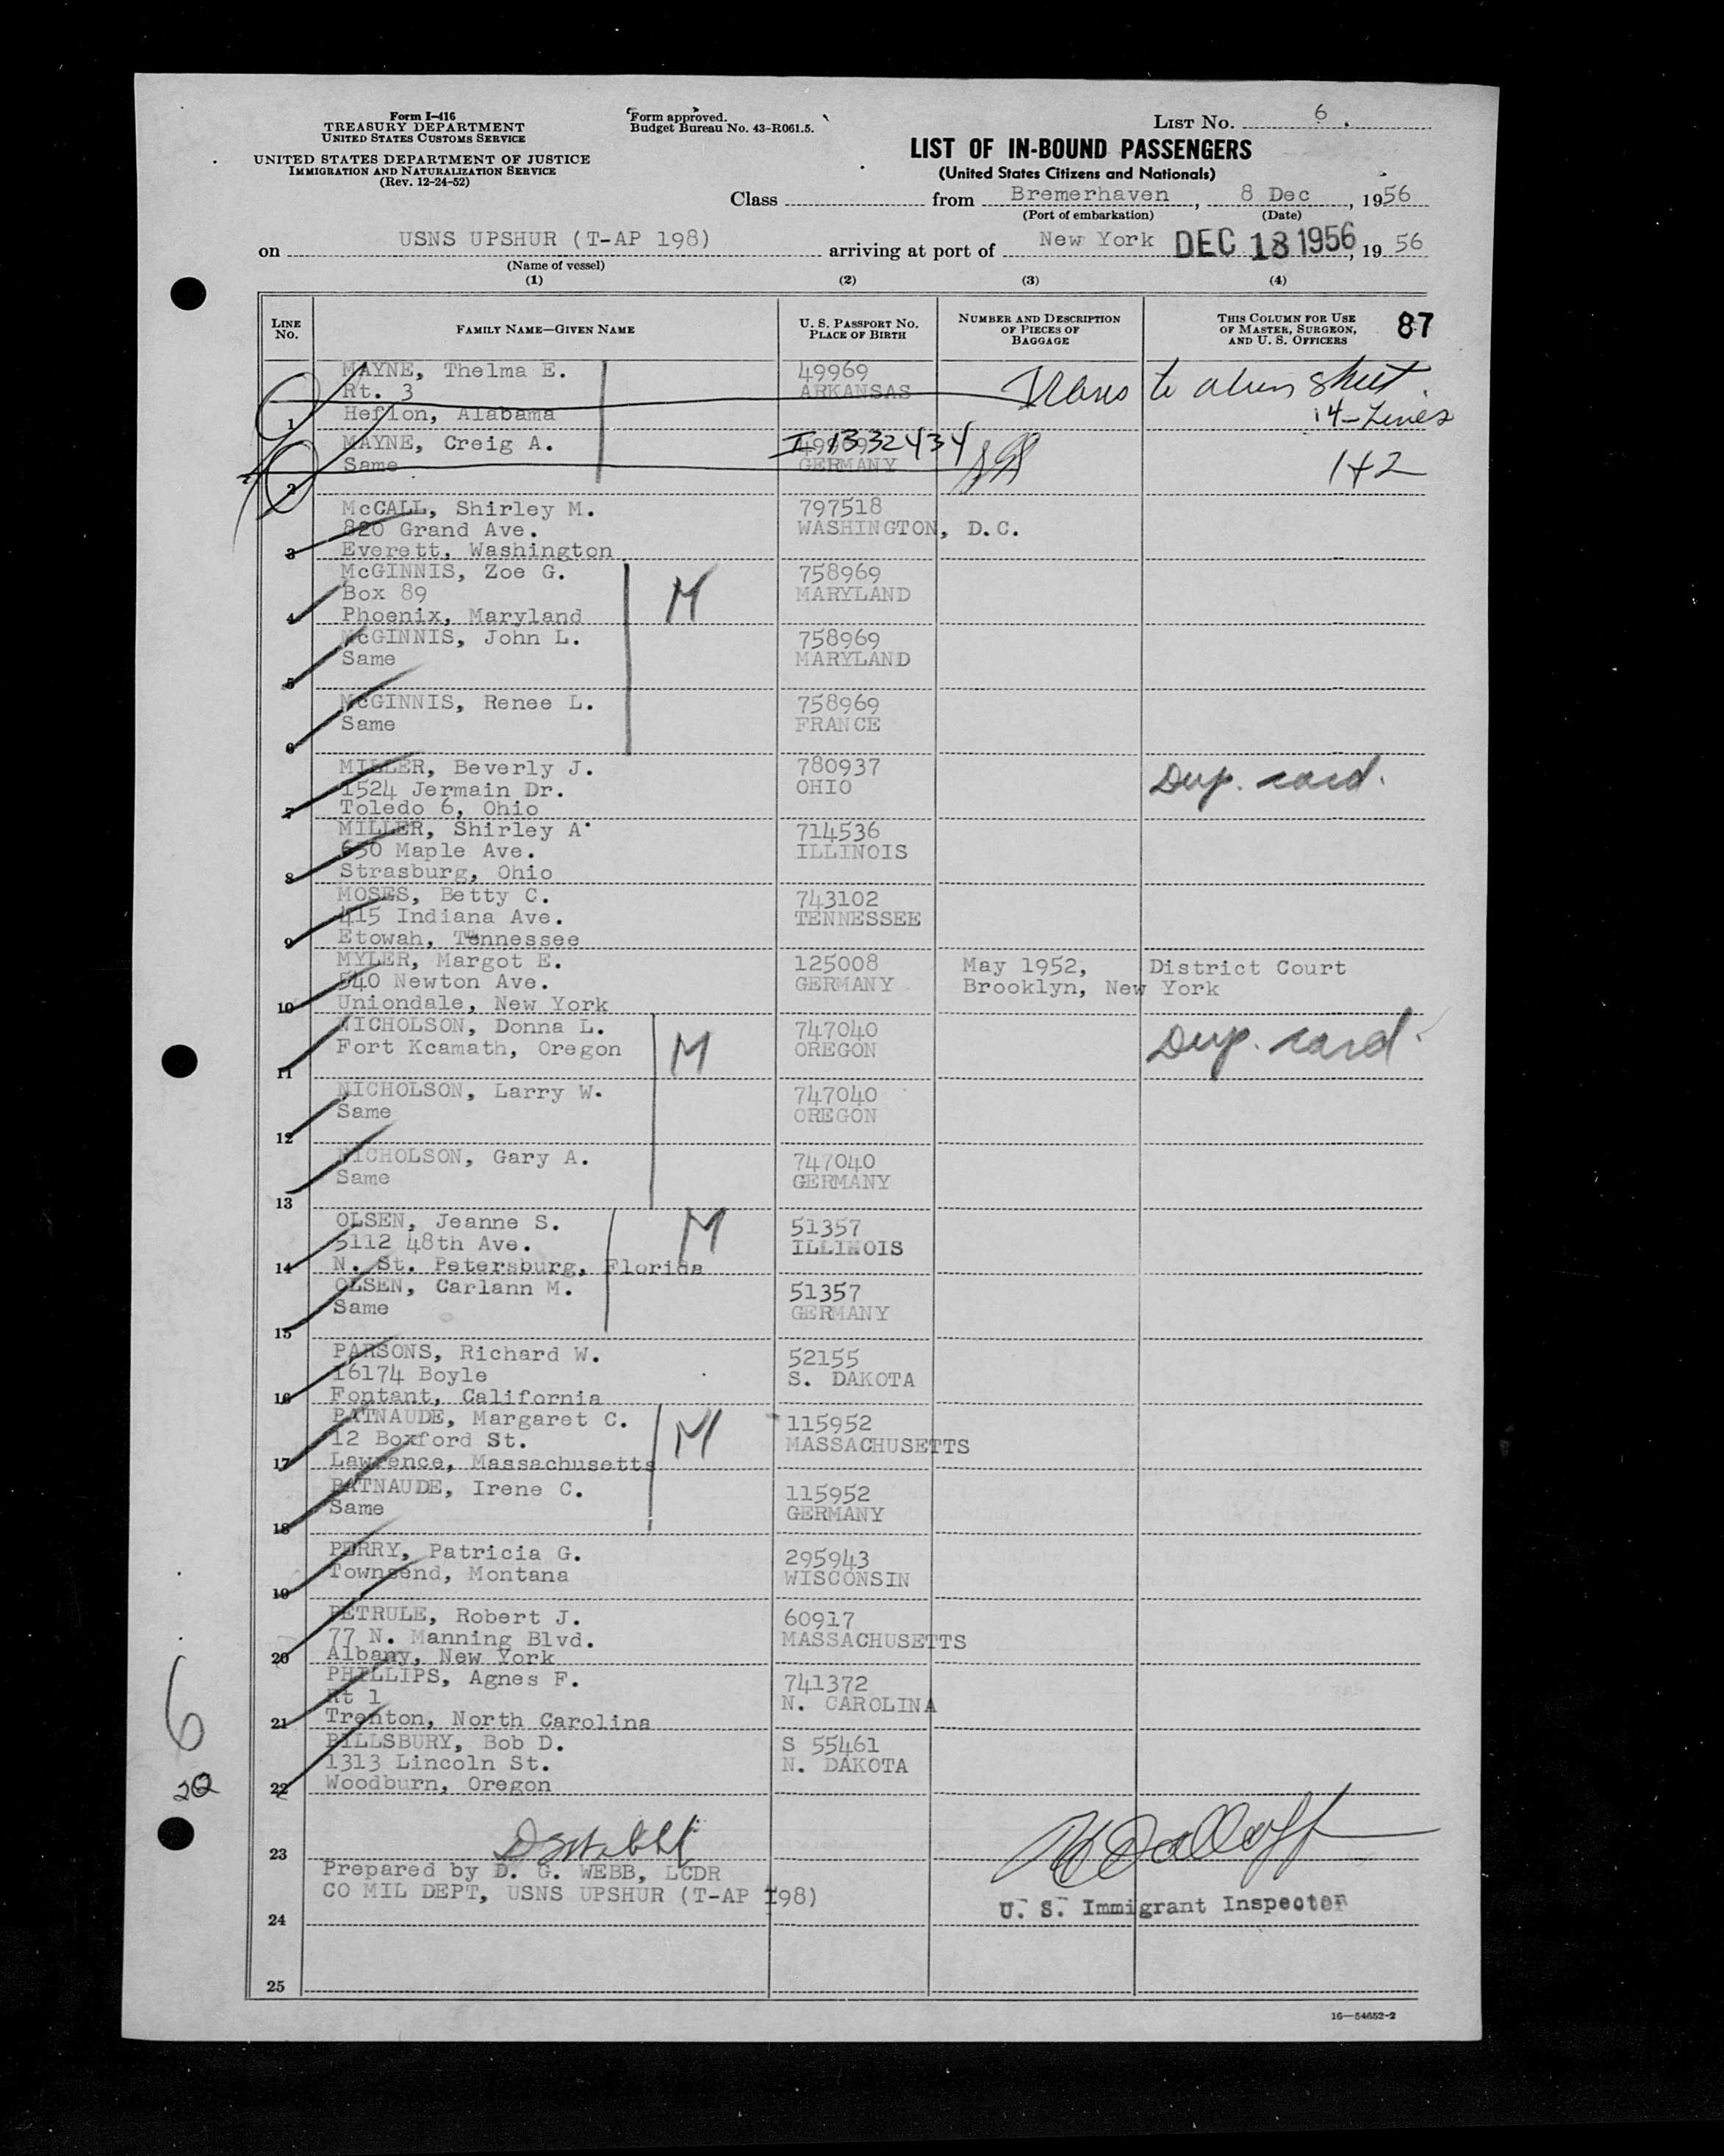 Form I-416
TREASURY DEPARTMENT
UNITED STATES CUSTOMS SERVICE
UNITED STATES DEPARTMENT OF JUSTICE
IMMIGRATION AND NATURALIZATION SERVICE
(Rev. 12-24-52)
Form approved.
Budget Bureau No. 43-R061.5.
LIST NO. 6
LIST OF IN-BOUND PASSENGERS
(United States Citizens and Nationals)
Class from Bremerhaven, 8 Dec, 1956
(Port of embarkation) (Date)
on USNS UPSHUR (T-AP 198) arriving at port of New York DEC 18 1956, 1956
(Name of vessel)
(1) (2) (3) (4)
LINE NO. FAMILY NAME—GIVEN NAME U. S. PASSPORT NO. PLACE OF BIRTH NUMBER AND DESCRIPTION OF PIECES OF BAGGAGE THIS COLUMN FOR USE OF MASTER, SURGEON, AND U. S. OFFICERS 87
MAYNE, Thelma E. 49969
Rt. 3 ARKANSAS Trans to alien sheet
1 Heflon, Alabama 14-Lines
MAYNE, Creig A. 49969 I-1332434
Same GERMANY 1+2
2
McCALL, Shirley M. 797518
820 Grand Ave. WASHINGTON, D.C.
3 Everett, Washington
McGINNIS, Zoe G. M 758969
Box 89 MARYLAND
4 Phoenix, Maryland
McGINNIS, John L. 758969
Same MARYLAND
5
McGINNIS, Renee L. 758969
Same FRANCE
6
MILLER, Beverly J. 780937 Dup. card.
1524 Jermain Dr. OHIO
7 Toledo 6, Ohio
MILLER, Shirley A. 714536
630 Maple Ave. ILLINOIS
8 Strasburg, Ohio
MOSES, Betty C. 743102
415 Indiana Ave. TENNESSEE
9 Etowah, Tennessee
MYLER, Margot E. 125008 May 1952, District Court
540 Newton Ave. GERMANY Brooklyn, New York
10 Uniondale, New York
NICHOLSON, Donna L. M 747040 Dup. card.
Fort Kcamath, Oregon OREGON
11
NICHOLSON, Larry W. 747040
Same OREGON
12
NICHOLSON, Gary A. 747040
Same GERMANY
13
OLSEN, Jeanne S. M 51357
5112 48th Ave. ILLINOIS
14 N. St. Petersburg, Florida
OLSEN, Carlann M. 51357
Same GERMANY
15
PARSONS, Richard W. 52155
16174 Boyle S. DAKOTA
16 Fontant, California
PATNAUDE, Margaret C. M 115952
12 Boxford St. MASSACHUSETTS
17 Lawrence, Massachusetts
PATNAUDE, Irene C. 115952
Same GERMANY
18
PERRY, Patricia G. 295943
Townsend, Montana WISCONSIN
19
PETRULE, Robert J. 60917
77 N. Manning Blvd. MASSACHUSETTS
20 Albany, New York
PHILLIPS, Agnes F. 741372
Rt 1 N. CAROLINA
21 Trenton, North Carolina
PILLSBURY, Bob D. S 55461
1313 Lincoln St. N. DAKOTA
22 Woodburn, Oregon
6
20
23
Prepared by D. G. WEBB, LCDR
CO MIL DEPT, USNS UPSHUR (T-AP 198)
U. S. Immigrant Inspector
24
25
16—54652-2